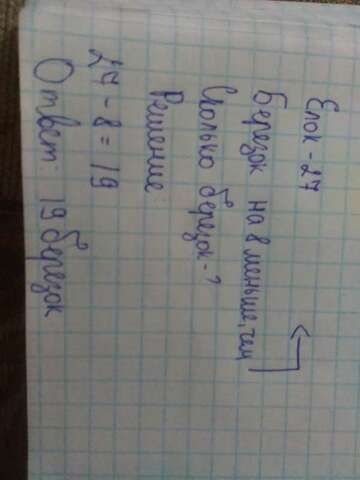 Елок - 27
Березок на 8 меньше, чем
Сколько березок - ?
Решение:
27 - 8 = 19
Ответ: 19 березок